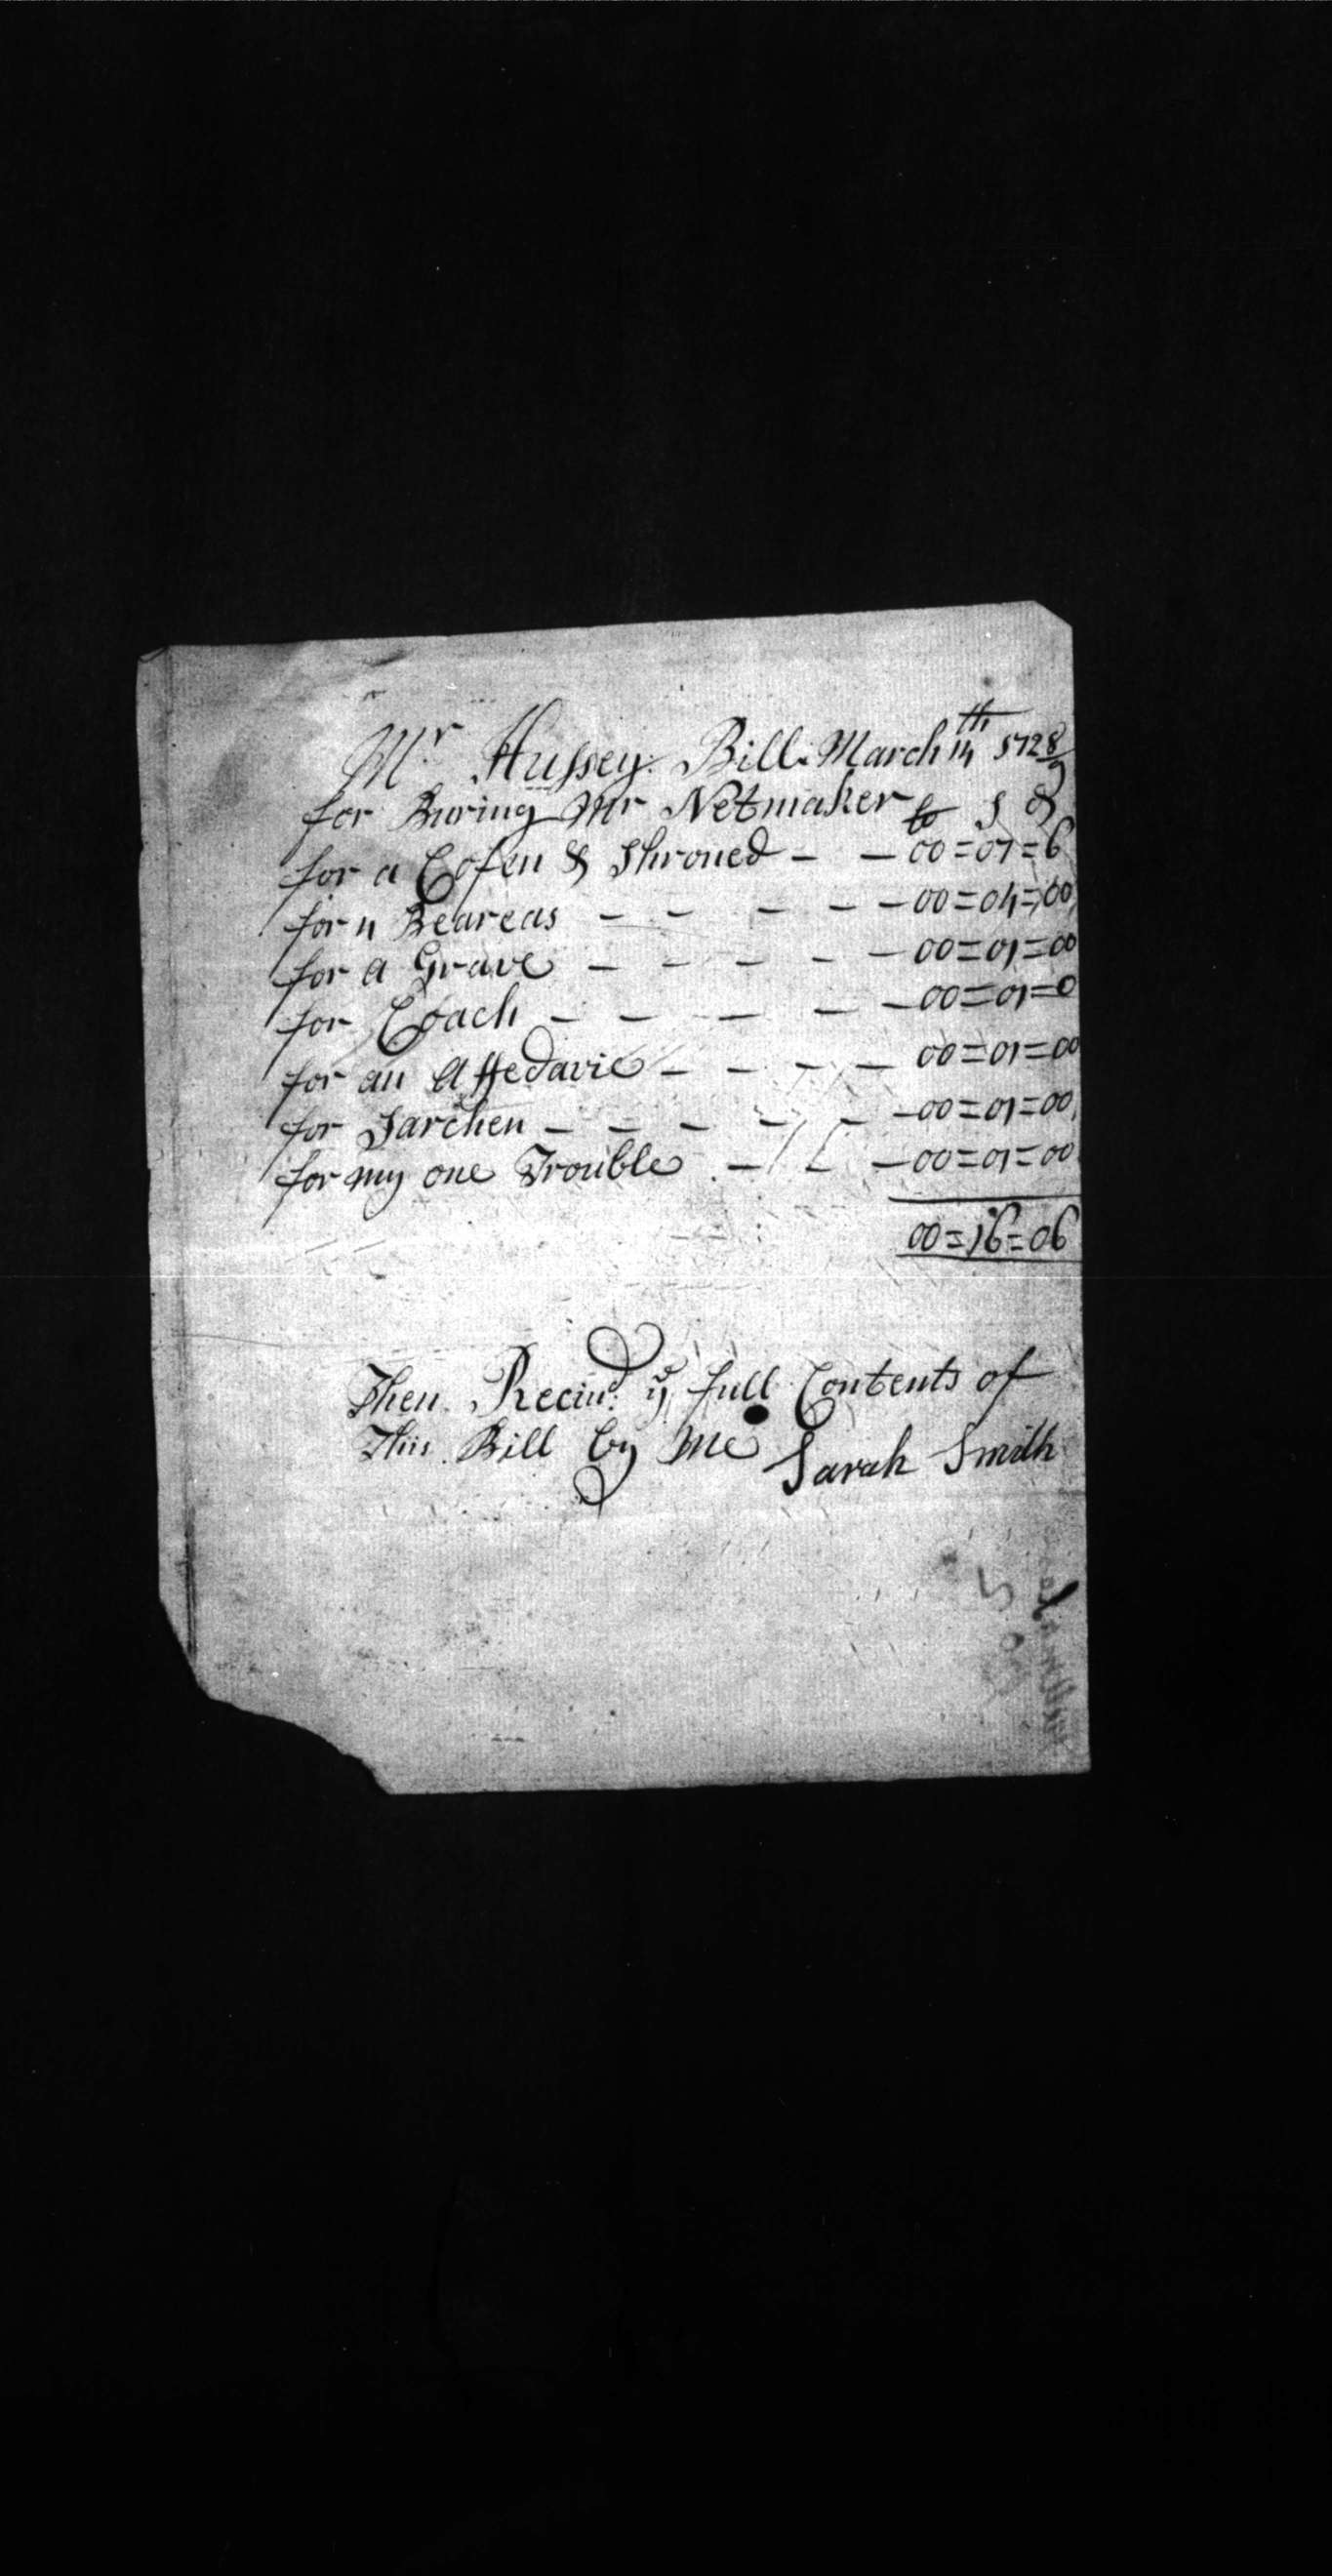 Mr Hussey Bill March 14th 1728/9
for Buring Mr Netmaker lb S d
for a Cofen & Shroued - - 00=07=6
for 4 Beareas - - - - - 00=04=00
for a Grave - - - - - 00=01=00
for Coach - - - - - 00=01=0
for an Affedavie - - - - 00=01=00
for Sarchen - - - - - 00=01=00
for my one Trouble - - - 00=01=00
00=16=06
Then Reciud ye full Contents of
This Bill by Me Sarah Smith